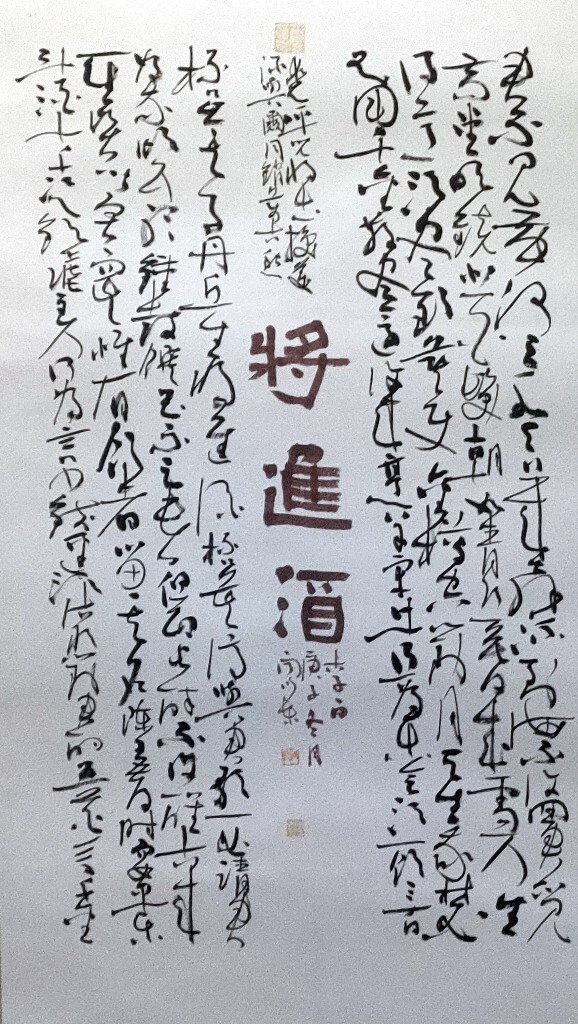 君不見黃河之水天上來奔流到海不復回君不見
高堂明鏡悲白髮朝如青絲暮成雪人生
得意須盡歡莫使金樽空對月天生我材必
有用千金散盡還復來烹羊宰牛且為樂會須一飲三百
裘呼兒將出換美
酒與爾同銷萬古愁
將進酒
庚子冬月
杯岑夫子丹丘生將進酒杯莫停與君歌一曲請君
為我傾耳聽鐘鼓饌玉不足貴但願長醉不復醒古來
聖賢皆寂寞惟有飲者留其名陳王昔時宴平樂
斗酒十千恣歡謔主人何為言少錢徑須沽取對君酌五花馬千金